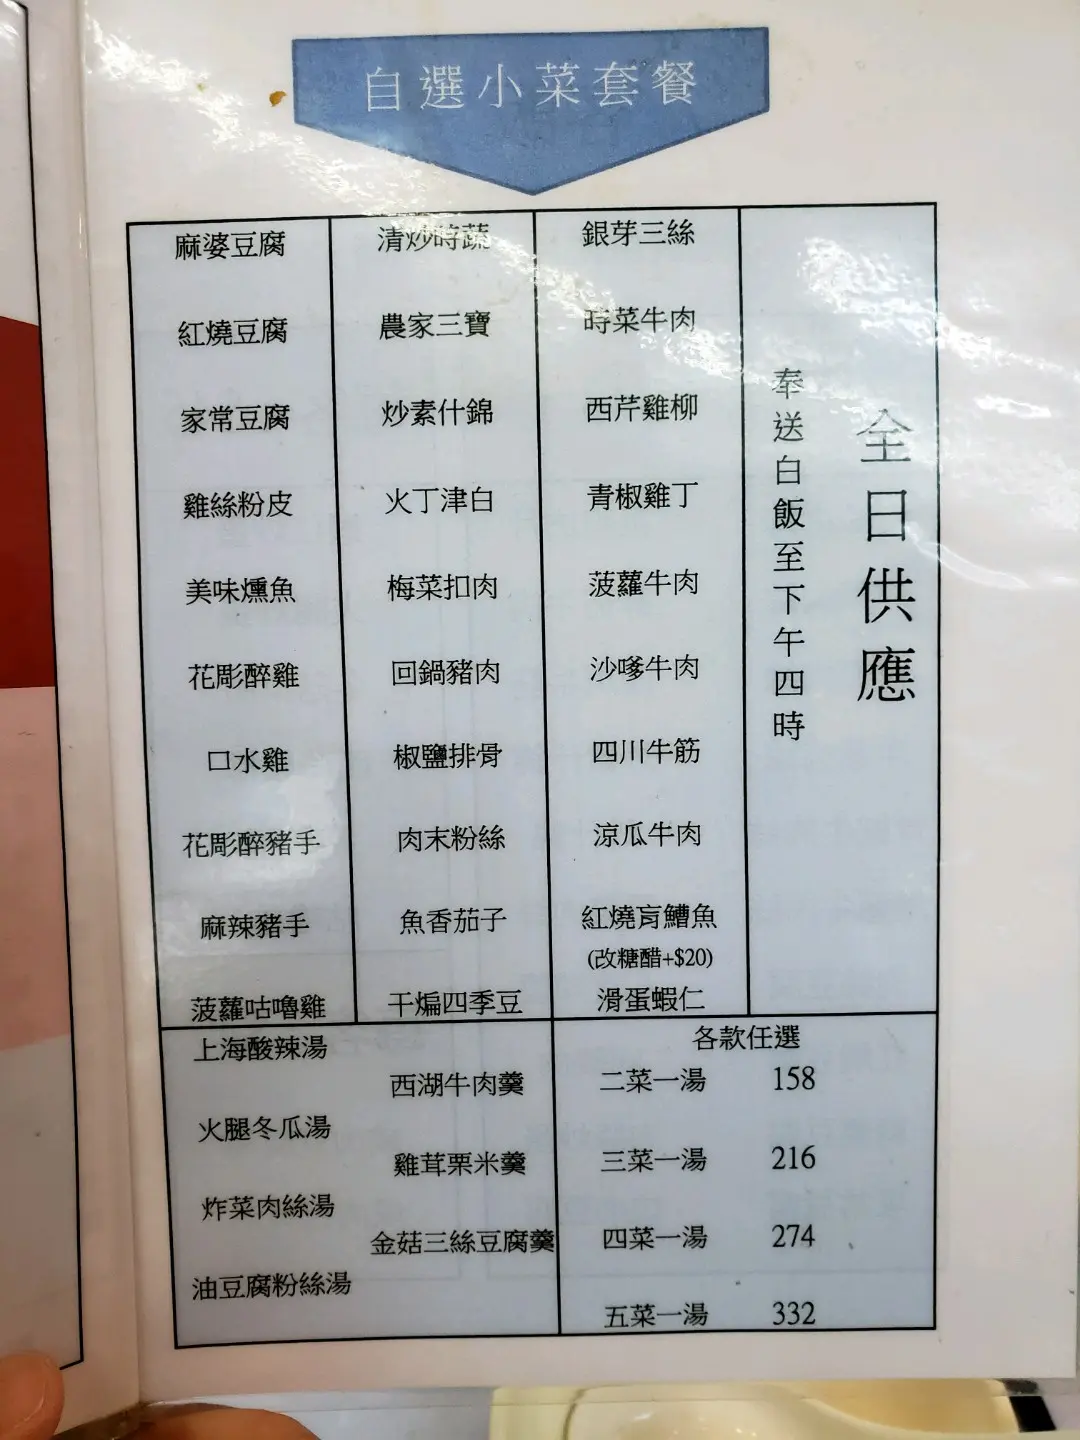 自選小菜套餐
麻婆豆腐
紅燒豆腐
家常豆腐
雞絲粉皮
美味燻魚
花彫醉雞
口水雞
花彫醉豬手
麻辣豬手
菠蘿咕嚕雞
清炒時蔬
農家三寶
炒素什錦
火丁津白
梅菜扣肉
回鍋豬肉
椒鹽排骨
肉末粉絲
魚香茄子
干煸四季豆
銀芽三絲
時菜牛肉
西芹雞柳
青椒雞丁
菠蘿牛肉
沙嗲牛肉
四川牛筋
涼瓜牛肉
紅燒肓鰽魚
(改糖醋+$20)
滑蛋蝦仁
全日供應
奉送白飯至下午四時
上海酸辣湯
西湖牛肉羹
火腿冬瓜湯
雞茸栗米羹
炸菜肉絲湯
金菇三絲豆腐羹
油豆腐粉絲湯
各款任選
二菜一湯 158
三菜一湯 216
四菜一湯 274
五菜一湯 332